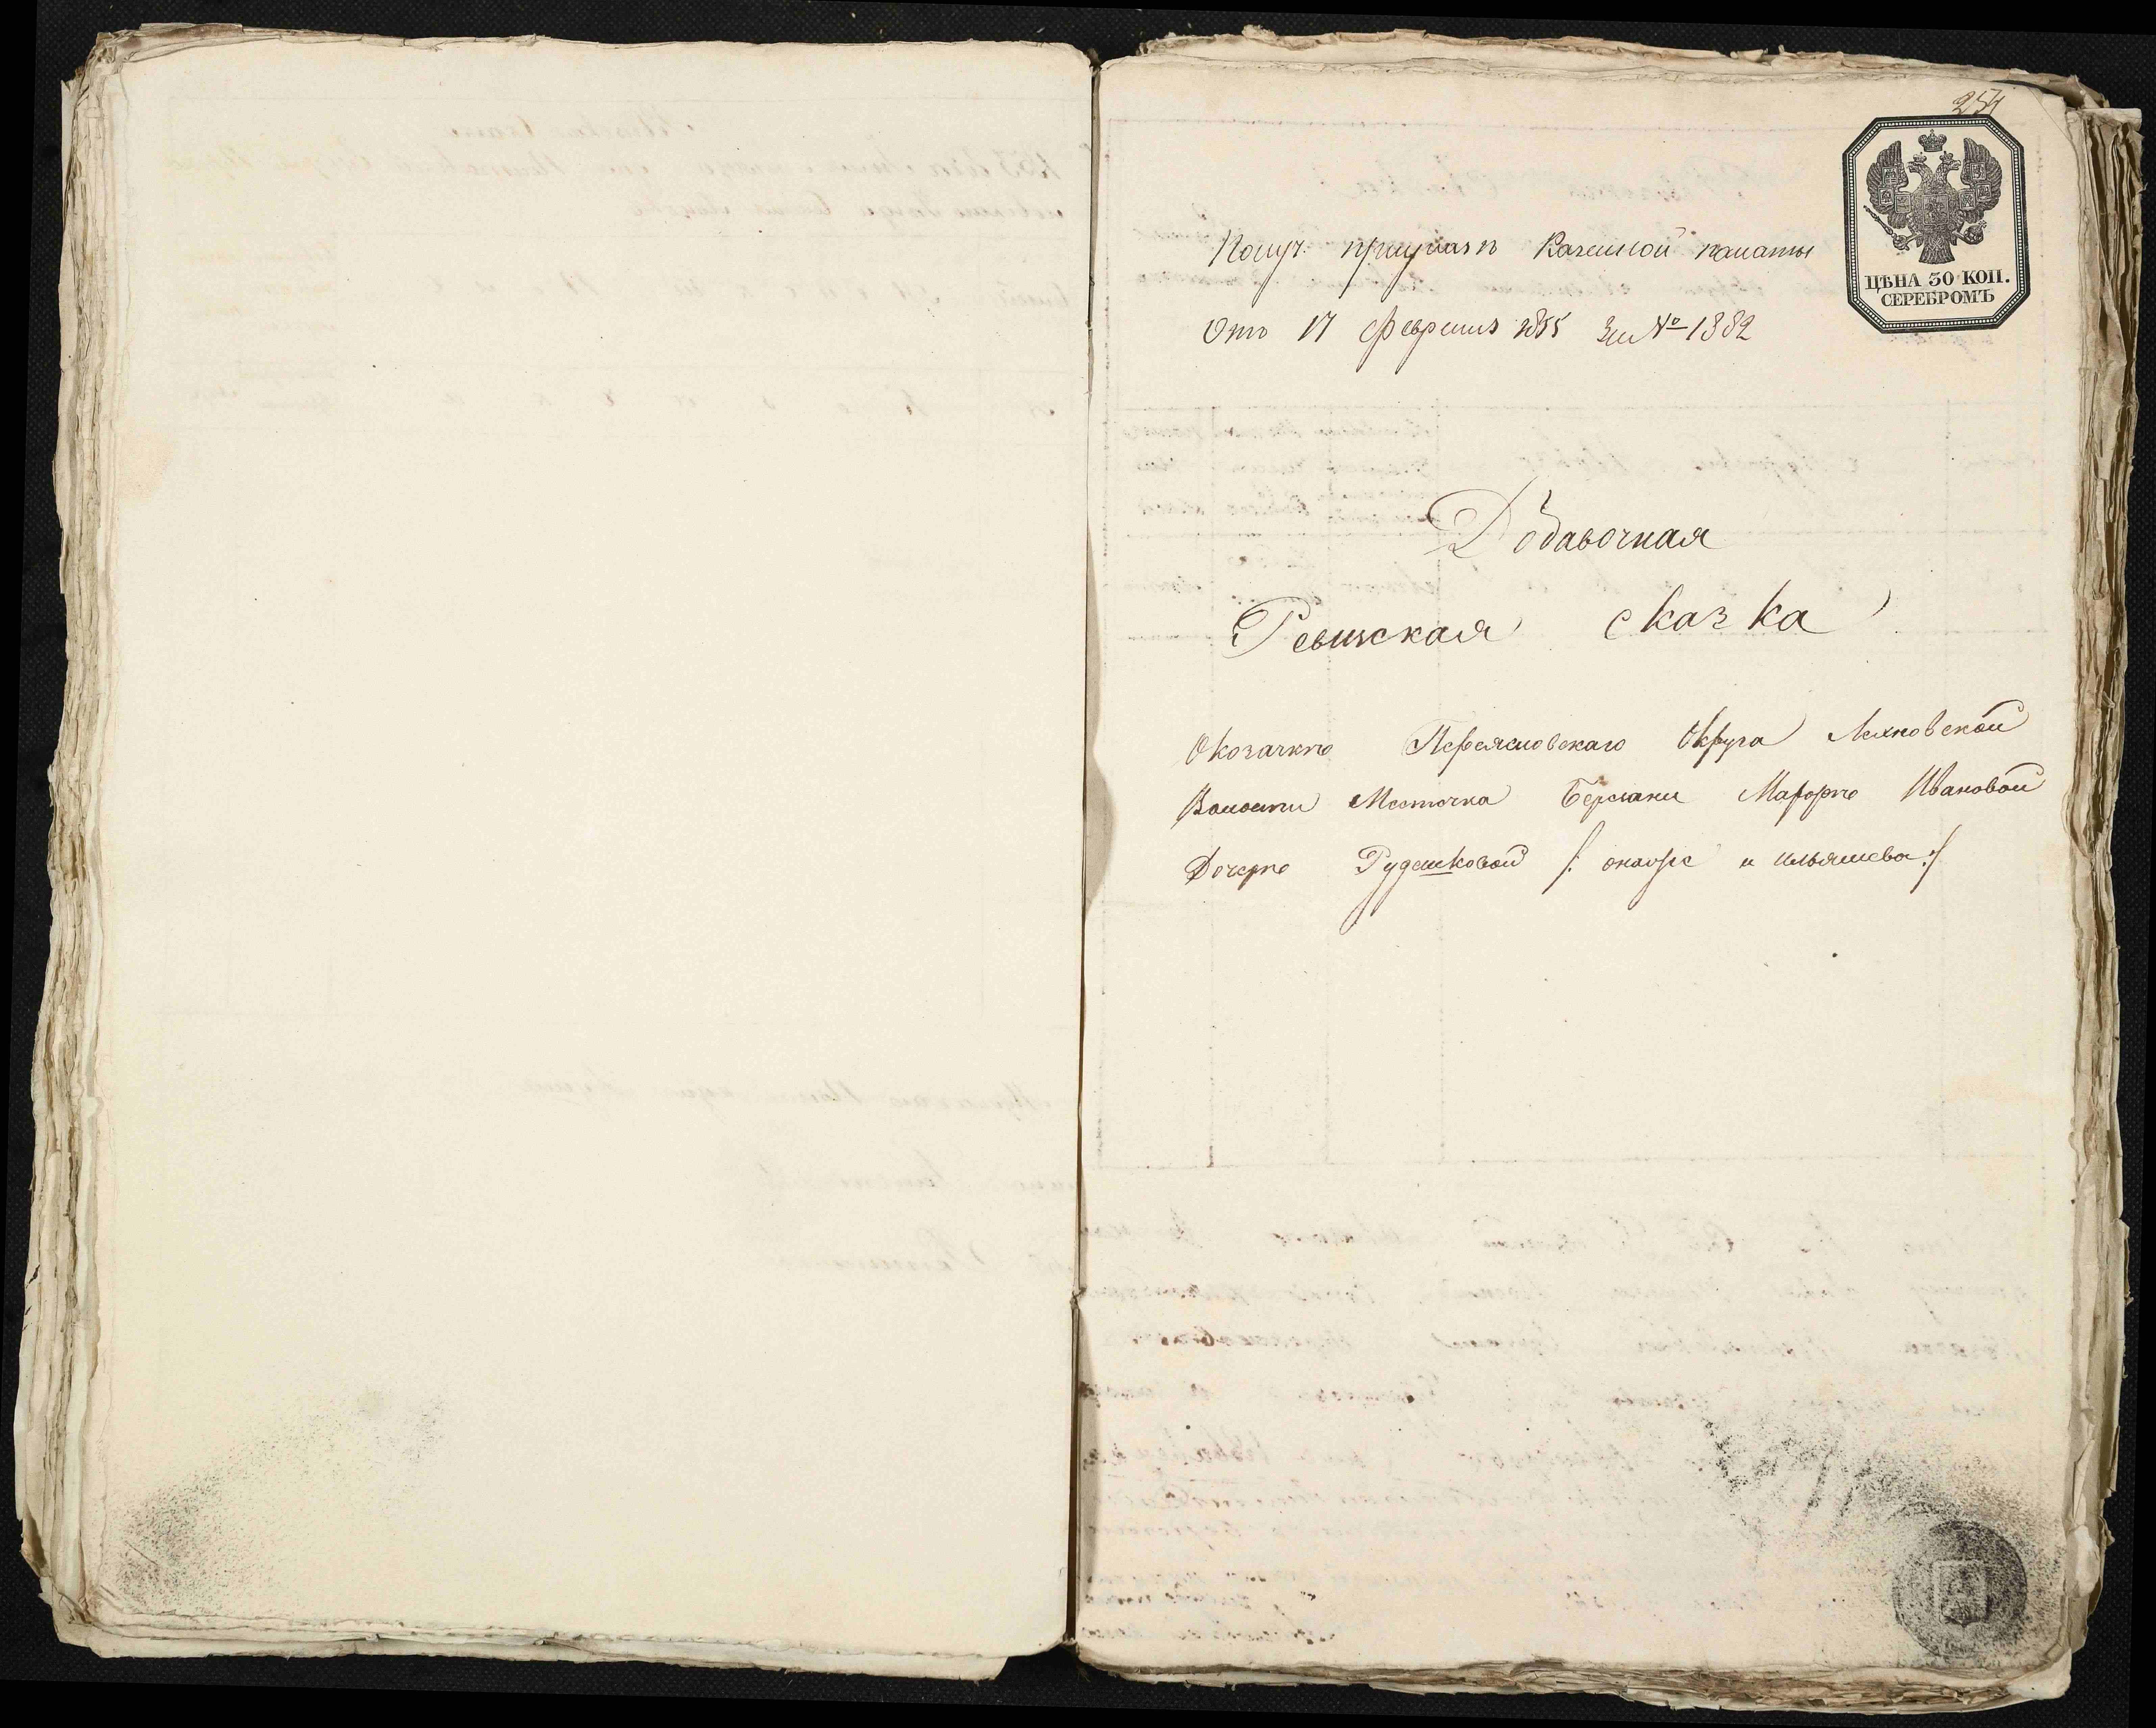 254
ЦѢНА 30 КОП.
СЕРЕБРОМЪ
Получ: при указѣ Казенной палаты
Отъ 17 Февраля 1855 За № 1382
Добавочная
Ревизская сказка
О козачкѣ Переяславскаго Округа Лехновской
Волости Местечка Березани Марфѣ Ивановой
Дочерѣ Руденковой /: она же и Ильяшева :/